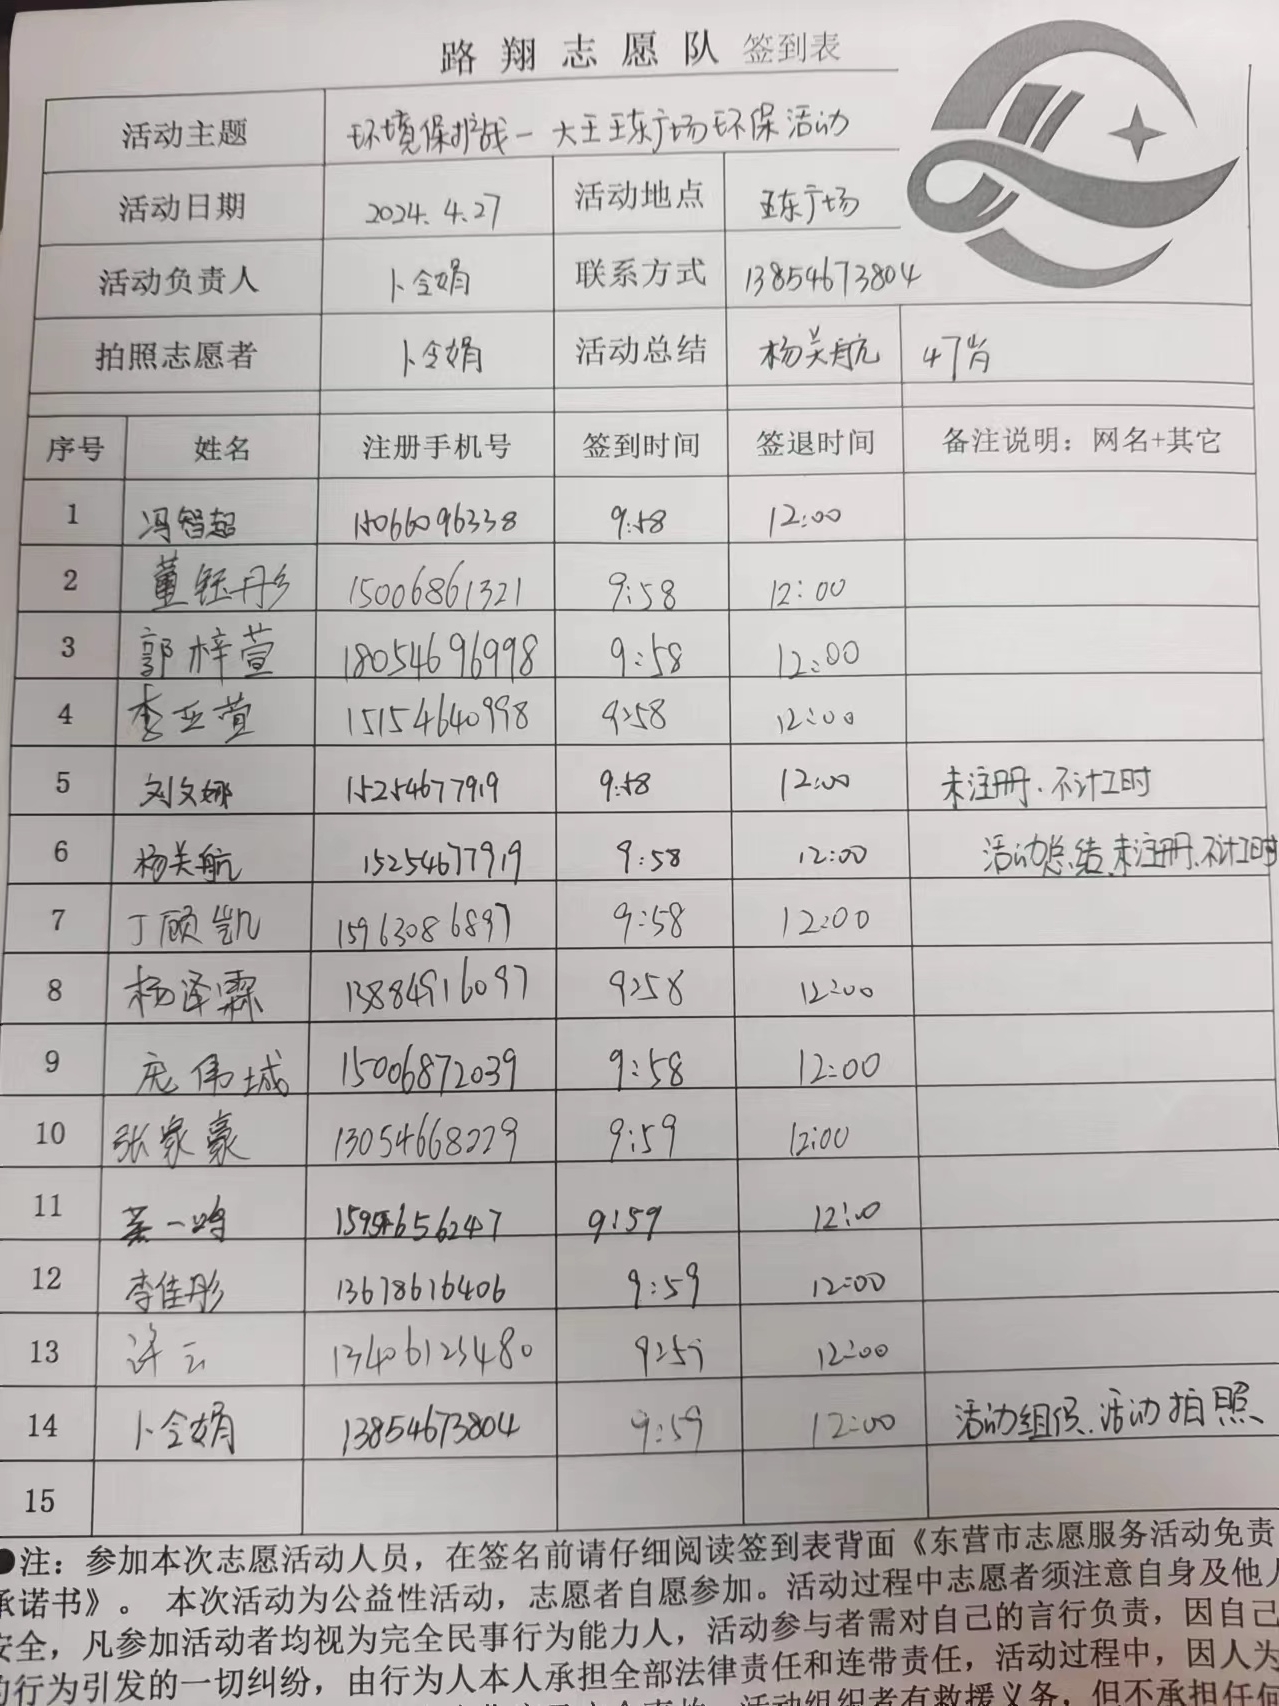 路翔志愿队 签到表
活动主题 环境保护战一 大王王东广场环保活动
活动日期 2024.4.27 活动地点 王东广场
活动负责人 卜令娟 联系方式 13854673804
拍照志愿者 卜令娟 活动总结 杨关航 47时
序号 姓名 注册手机号 签到时间 签退时间 备注说明：网名+其它
1 冯智超 15066096338 9:58 12:00
2 董钰彤 15006861321 9:58 12:00
3 郭梓萱 18054696998 9:58 12:00
4 李亚萱 15154640998 9:58 12:00
5 刘文娜 15254677919 9:58 12:00 未注册.不计工时
6 杨关航 15254677919 9:58 12:00 活动总结.未注册.不计工时
7 丁顾凯 15963086897 9:58 12:00
8 杨泽霖 13884916097 9:58 12:00
9 庞伟城 15006872039 9:58 12:00
10 张家豪 13054668229 9:59 12:00
11 一鸣 15954656247 9:59 12:00
12 李佳彤 13678616406 9:59 12:00
13 许云 13406125480 9:59 12:00
14 卜令娟 13854673804 9:59 12:00 活动组织.活动拍照
15
●注：参加本次志愿活动人员，在签名前请仔细阅读签到表背面《东营市志愿服务活动免责
承诺书》。 本次活动为公益性活动，志愿者自愿参加。活动过程中志愿者须注意自身及他人
安全，凡参加活动者均视为完全民事行为能力人，活动参与者需对自己的言行负责，因自己
的行为引发的一切纠纷，由行为人本人承担全部法律责任和连带责任，活动过程中，因人为
活动组织者有救援义务，但不承担任何